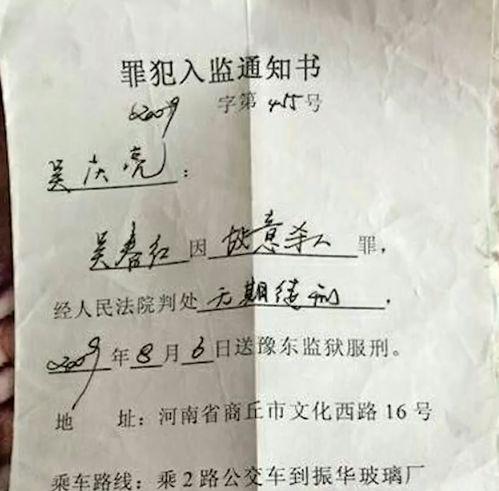 罪犯入监通知书
2009 字第455号
吴庆亮：
吴春红因故意杀人罪，
经人民法院判处无期徒刑，
2009年8月6日送豫东监狱服刑。
地 址：河南省商丘市文化西路16号
乘车路线：乘2路公交车到振华玻璃厂